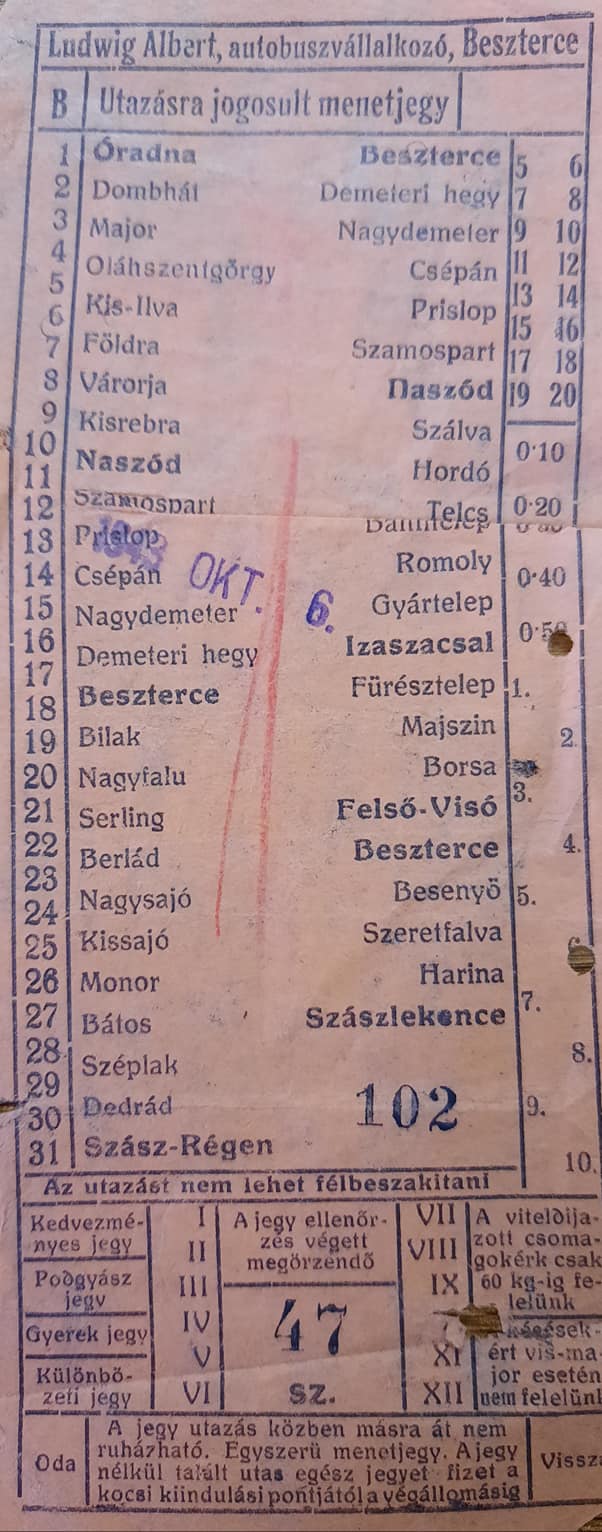 Ludwig Albert, autobuszvállalkozó, Beszterce
B Utazásra jogosult menetjegy
1 Óradna Beszterce 5 6
2 Dombhát Demeteri hegy 7 8
3 Major Nagydemeter 9 10
4 Oláhszentgörgy Csépán 11 12
5 Kis-Ilva Prislop 13 14
6 Földra Szamospart 15 16
7 Várorja Naszód 17 18
8 Kisrebra Szálva 19 20
9 Naszód Hordó 0·10
10 Szamospart Telcs 0·20
11 Prislop
12 Csépán Romoly 0·40
13 Nagydemeter Gyártelep
14 Demeteri hegy Izaszacsal
15 Beszterce Fürésztelep 1.
16 Bilak Majszin 2.
17 Nagyfalu Borsa
18 Serling Felső-Visó 3.
19 Berlád Beszterce 4.
20 Nagysajó Besenyö 5.
21 Kissajó Szeretfalva 6.
22 Monor Harina
23 Bátos Szászlekence 7.
24 Széplak 8.
25 Dedrád 102 9.
26 Szász-Régen 10.
27
28
29
30
31
1943 OKT. 6.
Az utazást nem lehet félbeszakitani
Kedvezmé-
nyes jegy
Podgyász
jegy
Gyerek jegy
Különbö-
zeti jegy
I
II
III
IV
V
VI
A jegy ellenőr-
zés végett
megörzendő
47
sz.
VII
VIII
IX
XI
XII
A viteldija-
zott csoma-
gokérk csak
60 kg-ig fe-
lelünk
késések-
ért vis-ma-
jor esetén
nem felelünk
Oda
A jegy utazás közben másra át nem
ruházható. Egyszerü menetjegy. A jegy
nélkül talált utas egész jegyet fizet a
kocsi kiindulási pontjától a végállomásig
Vissza